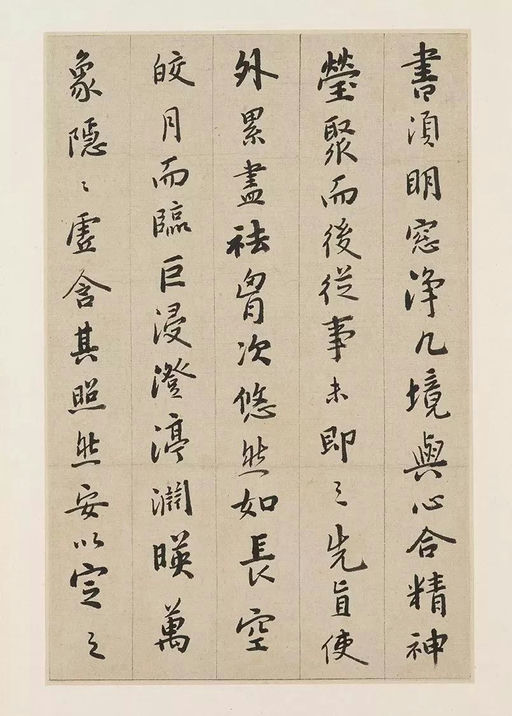 書須明窓浄几境與心合精神
瑩聚而後從事未即〻先旨使
外累盡祛胷次悠然如長空
皎月而臨巨浸澄渟澗暎萬
象隱〻虛含其照然安以定之